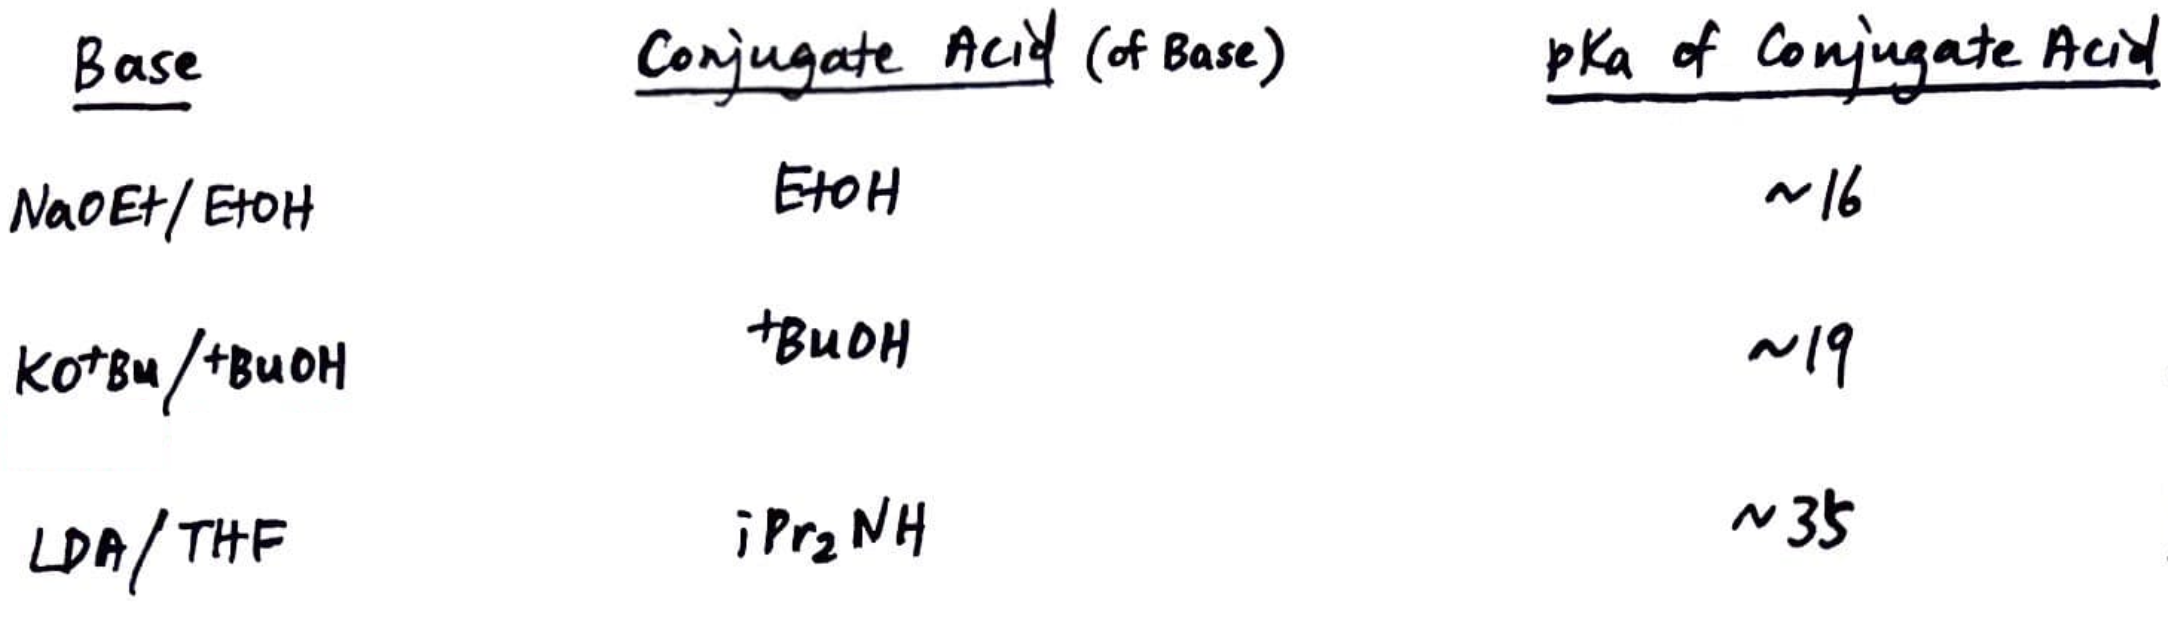 Base Conjugate Acid (of Base) pKa of Conjugate Acid
NaOEt/EtOH EtOH ~16
KOtBu/tBuOH tBuOH ~19
LDA/THF iPr2NH ~35